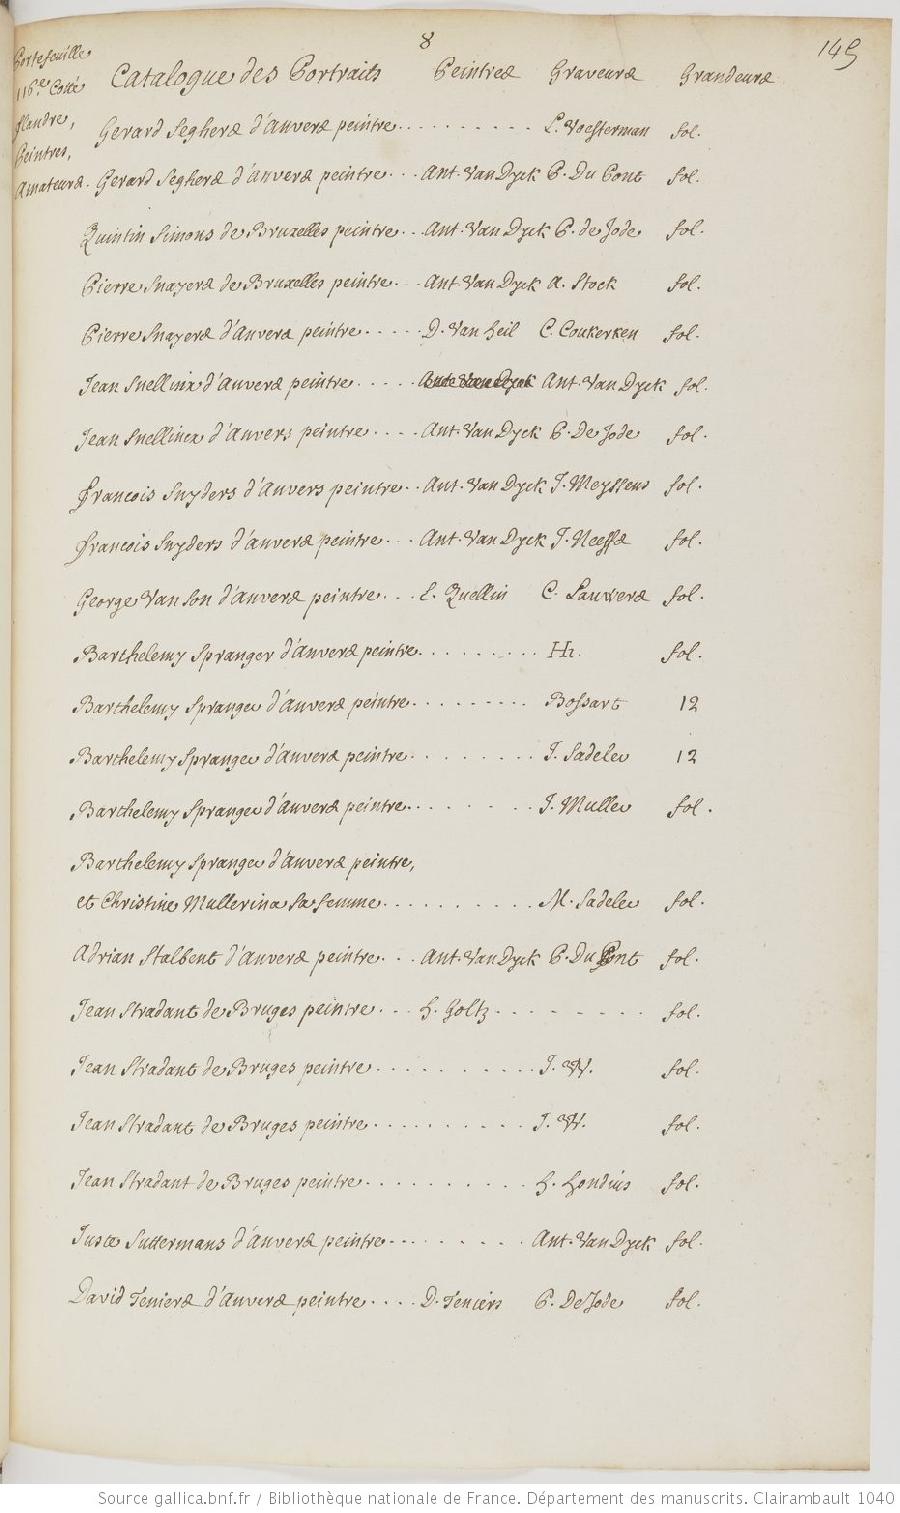 8
145
Portefeuille
116.e Cotté
flandre,
Peintres,
Amateurs.
Catalogue des Portraits Peintres Graveurs Grandeurs
Gerard Seghers d'Anvers peintre. . . . . . . . . . L. Voesterman fol.
Gerard Seghers d'Anvers peintre. . . Ant. Van Dyck P. Du Pont fol.
Quintin Simons de Bruxelles peintre. . Ant. Van Dyck P. de Jode fol.
Pierre Snayers de Bruxelles peintre. . . Ant. Van Dyck A. Stock fol.
Pierre Snayers d'Anvers peintre. . . . . D. Van heil C. Coukerken fol.
Jean Snellinx d'Anvers peintre. . . . . Ant. Van Dyck Ant. Van Dyck fol.
Jean Snellincx d'Anvers peintre. . . . Ant. Van Dyck P. De Jode fol.
francois Snyders d'Anvers peintre. . Ant. Van Dyck J. Meyssens fol.
francois Snyders d'Anvers peintre. . . Ant. Van Dyck J. Neeffs fol.
George Van Son d'Anvers peintre. . . E. Quellin C. Lauwers fol.
Barthelemy Spranger d'Anvers peintre. . . . . . . . . Hh. fol.
Barthelemy Spranger d'Anvers peintre. . . . . . . . . Bossart 12
Barthelemy Spranger d'Anvers peintre. . . . . . . . . J. Sadeler 12
Barthelemy Spranger d'Anvers peintre. . . . . . . . J. Muller fol.
Barthelemy Spranger d'Anvers peintre,
et Christine Mullerina sa femme. . . . . . . . . . M. Sadeler fol.
Adrian Stalbent d'Anvers peintre. . . Ant. Van Dyck P. Du Pont fol.
Jean Stradant de Bruges peintre. . . H. Goltz. . . . . . . . . fol.
Jean Stradant de Bruges peintre. . . . . . . . . . J. W. fol.
Jean Stradant de Bruges peintre. . . . . . . . . . J. W. fol.
Jean Stradant de Bruges peintre. . . . . . . . . . H. Hondius fol.
Juste Suttermans d'Anvers peintre. . . . . . . . Ant. Van Dyck fol.
David Teniers d'Anvers peintre. . . . D. Teniers P. De Jode fol.
Source gallica.bnf.fr / Bibliothèque nationale de France. Département des manuscrits. Clairambault 1040